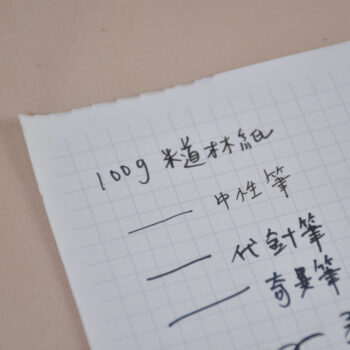 100g 米道林紙
中性筆
代針筆
奇異筆